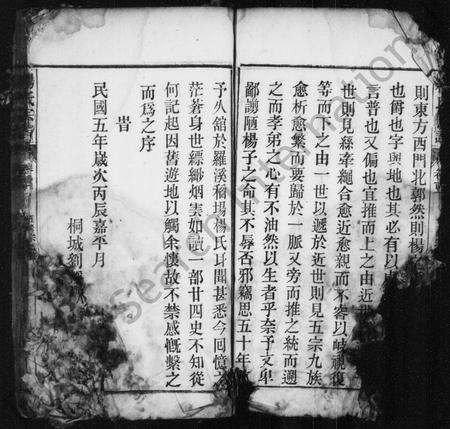 則東方西門北郭然則楊
也爵也字與地也其必有以
言普也又偏也宜推而上之由近
世則見絲牽繩合愈近愈親而不容以歧視復
等而下之由一世以遞於近世則見五宗九族
愈析愈繁而要歸於一脈又旁而推之統而遡
之而孝弟之心有不油然以生者乎奈予文卑
鄙謭陋楊子之命其不辱否邪竊思五十年
予久舘於羅溪稻場楊氏耳聞甚悉今囘憶
茫若身世縹緲烟雲如讀一部廿四史不知從
何記起因舊遊地以觸余懷故不禁感慨繫之
而爲之序
旹
民國五年歲次丙辰嘉平月
桐城劉